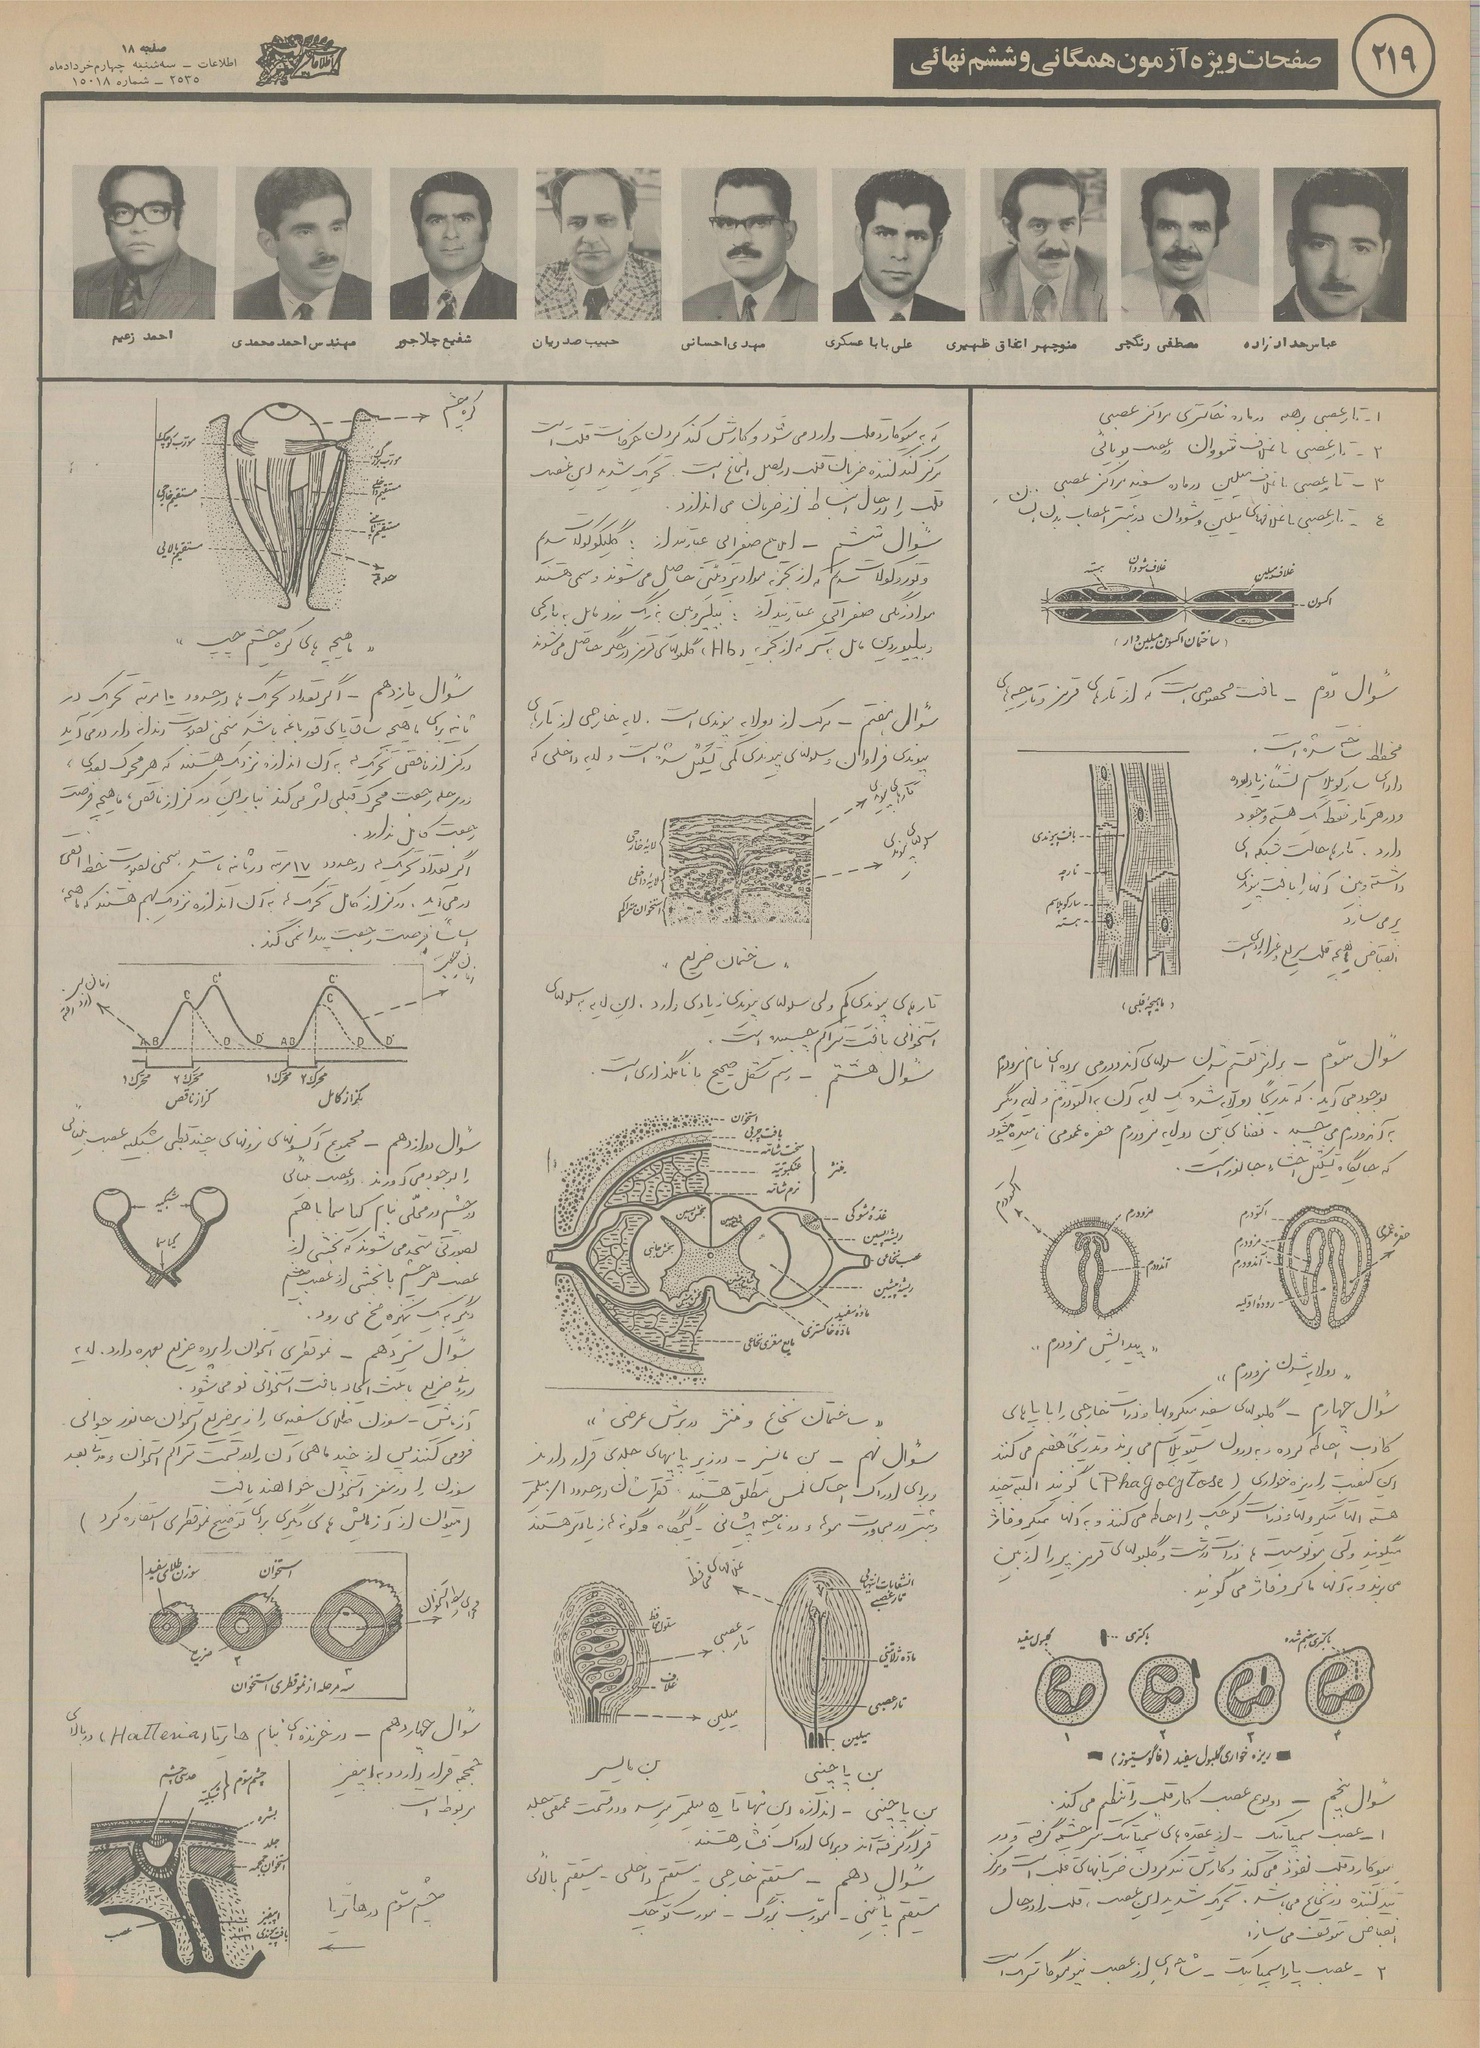 صفحه ۱۸
اطلاعات – سه‌شنبه چهارم خردادماه
۲۵۳۵ – شماره ۱۵۰۱۸
صفحات ویژه آزمون همگانی و ششم نهائی
۲۱۹
عباس حدادزاده
مصطفی رنگچی
منوچهر اتفاق ظهیری
علی بابا عسکری
مهدی احسانی
حبیب صدریان
شفیع چلاجور
مهندس احمد محمدی
احمد زعیم
۱- تار عصبی برهنه در ماده خاکستری مراکز عصبی
۲- تار عصبی با غلاف شووان در عصب بویائی
۳- تار عصبی با غلاف میلین در ماده سفید مراکز عصبی
۴- تار عصبی با غلافهای میلین و شووان در بیشتر اعصاب بدن
غلاف میلین
غلاف شووان
هسته
اکسون
(ساختمان اکسون میلین دار)
سؤال دوم – بافت مخصوصی است که از تارهای قرمز و تارچه‌های
مخطط ساخته شده است.
دارای سارکوپلاسم نسبتاً زیاد بوده
و در هر تار فقط یک هسته وجود
دارد. تارها حالت شبکه‌ای
داشته و بین آنها را بافت پیوندی
پر می سازد
انقباض ماهیچه قلب سریع و غیر ارادی است
بافت پیوندی
تارچه
سارکوپلاسم
هسته
(ماهیچه قلبی)
سؤال سوم – بر اثر تقسیم شدن سلولهای آندودرمی پرده‌ای بنام مزودرم
بوجود می آید. که تدریجاً دولایه شده یک لایه آن به اکتودرم و لایه دیگر
به آندودرم می چسبد. فضای بین دولایه مزودرم حفره عمومی نامیده میشود
که جایگاه تشکیل احشاء جانور است.
اکتودرم
مزودرم
آندودرم
اکتودرم
مزودرم
آندودرم
روده اولیه
حفره عمومی
«پیدایش مزودرم»
«دولایه شدن مزودرم»
سؤال چهارم – گلبولهای سفید میکروبها و ذرات خارجی را با پاهای
کاذب احاطه کرده و به درون سیتوپلاسم می برند و تدریجاً هضم می کنند
این کیفیت را ریزه خواری (Phagocytose) گویند البته چند
هسته ایها میکروبها و ذرات کوچک را احاطه می کنند و به آنها میکروفاژ
میگویند ولی مونوسیت ها ذرات درشت و گلبولهای قرمز پیر را از بین
می برند و به آنها ماکروفاژ می گویند.
باکتری هضم شده
باکتری
گلبول سفید
۱
۲
۳
۴
ریزه خواری گلبول سفید (فاگوسیتوز)
سؤال پنجم – دو نوع عصب کار قلب را تنظیم می کند.
۱- عصب سمپاتیک – از عقده های سمپاتیک سرچشمه گرفته و در
میوکارد قلب نفوذ می کند و کارش تند کردن ضربانهای قلب است و مرکز
تند کننده در نخاع می باشد. تحریک شدید این عصب، قلب را در حال
انقباض متوقف می سازد
۲- عصب پاراسمپاتیک – شاخه‌ای از عصب پنوموگاستریک است
که به میوکارد قلب وارد می شود و کارش کند کردن حرکات قلب است
مرکز کند کننده ضربان قلب در بصل النخاع است. تحریک شدید این عصب
قلب را در حال انبساط از ضربان می اندازد.
سؤال ششم – املاح صفرائی عبارتند از: گلیکوکولات سدیم
و تورو کولات سدیم که از تجزیه مواد پروتئینی حاصل می شوند و سمی هستند
مواد رنگی صفرائی عبارتند از: بیلیروبین به رنگ زرد مایل به نارنجی
و بیلیوردین مایل به سبز که از تجزیه (Hb) گلبولهای قرمز در جگر حاصل می شوند
سؤال هفتم – مرکب از دولایه پیوندی است. لایه خارجی از تارهای
پیوندی فراوان و سلولهای پیوندی کمی تشکیل شده است و لایه داخلی که
تارهای پیوندی
سلولهای پیوندی
لایه خارجی
لایه داخلی
استخوان متراکم
«ساختمان ضریع»
تارهای پیوندی کم ولی سلولهای پیوندی زیادی دارد. این لایه به سلولهای
استخوانی بافت متراکم چسبیده است.
سؤال هشتم – رسم شکل صحیح با نامگذاری است.
استخوان
بافت چربی
سخت شامه
عنکبوتیه
نرم شامه
مننژ
غده شوکی
ریشه پسین
عصب نخاعی
ریشه پیشین
ماده سفید
ماده خاکستری
مایع مغزی نخاعی
«ساختمان نخاع و مننژ در برش عرضی»
سؤال نهم – بن مایسنر – در زیر پاپیهای جلدی قرار دارند
و برای ادراک احساس لمس مطلق هستند.
غلافهای محافظ
انشعابات انتهایی تار عصبی
ماده ژلاتینی
تار عصبی
میلین
سلول محافظ
تار عصبی
غلاف
میلین
بن پاچینی
بن مایسنر
بن پاچینی – اندازه این بن‌ها تا ۵ میلیمتر میرسد و در قسمت عمقی جلد
قرار گرفته‌اند و برای ادراک فشار هستند.
سؤال دهم – مستقیم خارجی – مستقیم داخلی – مستقیم بالائی
مستقیم پائینی – مورب بزرگ – مورب کوچک
کره چشم
مورب کوچک
مورب بزرگ
مستقیم خارجی
مستقیم داخلی
مستقیم پائینی
مستقیم بالایی
حدقه
«ماهیچه های کره چشم چپ»
سؤال یازدهم – اگر تعداد تحریک ها در حدود ۱۰ مرتبه تحریک در
ثانیه برای ماهیچه ساق پای قورباغه باشد منحنی بصورت دندانه دار در می آید
در کزاز ناقص تحریک ها به آن اندازه نزدیک هستند که هر محرک بعدی،
در مرحله رجعت محرک قبلی اثر می کند بنابراین در کزاز ناقص، ماهیچه فرصت
رجعت کامل ندارد.
اگر تعداد تحریک ها در حدود ۱۷ مرتبه در ثانیه باشد منحنی بصورت خط افقی
در می آید. در کزاز کامل تحریک ها به آن اندازه نزدیک بهم هستند که ماهیچه
اساساً فرصت رجعت پیدا نمی کند.
A B C C' D D' A B C C' D D'
محرک ۱
محرک ۲
محرک ۱
محرک ۲
کزاز ناقص
کزاز کامل
سؤال دوازدهم – مجموع آکسونهای نرونهای چند قطبی شبکیه عصب بینائی
را بوجود می آورند. دو عصب بینائی
در چشم در محلی بنام کیاسما با هم
بصورتی متحد می شوند که بخشی از
عصب هر چشم با بخشی از عصب چشم
دیگر به یک نیمکره مخ می رود.
شبکیه
کیاسما
سؤال سیزدهم – نمو قطری استخوان را پرده ضریع بعهده دارد. لایه
درونی ضریع باعث ایجاد بافت استخوانی نو می شود.
آزمایش – سوزن طلای سفیدی را از زیر ضریع استخوان جانور جوانی
فرو می کنند پس از چند ماهی آن را در قسمت متراکم استخوان و مدتی بعد
سوزن را در مغز استخوان خواهند یافت
(میتوان از آزمایش های دیگری برای توضیح نمو قطری استفاده کرد)
سوزن طلای سفید
استخوان
مجرای وسط استخوان
ضریع
۲
۳
سه مرحله از نمو قطری استخوان
سؤال چهاردهم – در خزنده‌ای بنام هاتریا (Hatteria) در بالای
جمجمه قرار دارد و به اپیفیز
مربوط است.
چشم سوم
شبکیه
عدسی چشم
بشره
جلد
استخوان جمجمه
اپیفیز
بافت پیوندی
عصب
چشم سوم در هاتریا